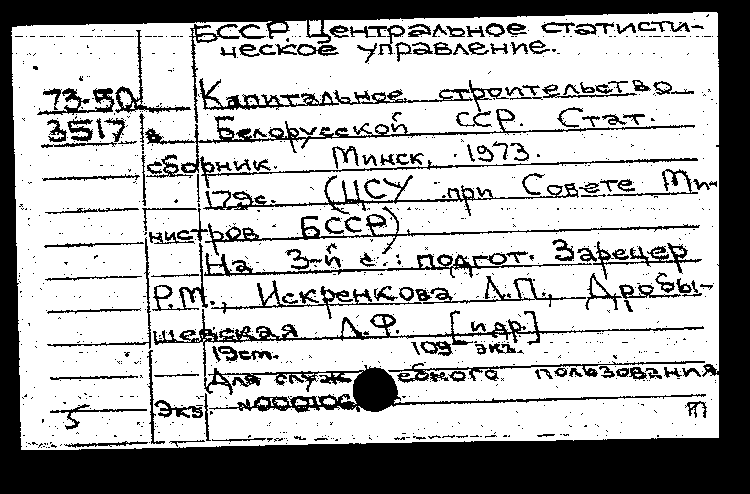 БССР. Центральное статисти-
ческое управление.
73-50
3517
Капитальное строительство
в Белорусской ССР. Стат.
сборник. Минск, 1973.
179с. (ЦСУ при Совете Ми-
нистров БССР).
На 3-й с.: подгот. Зарецер
Р.М., Искренкова Л.П., Дробы-
шевская Л.Ф. [и др.]
19см. 109 экз.
Для служебного пользования
Экз. №000106
5